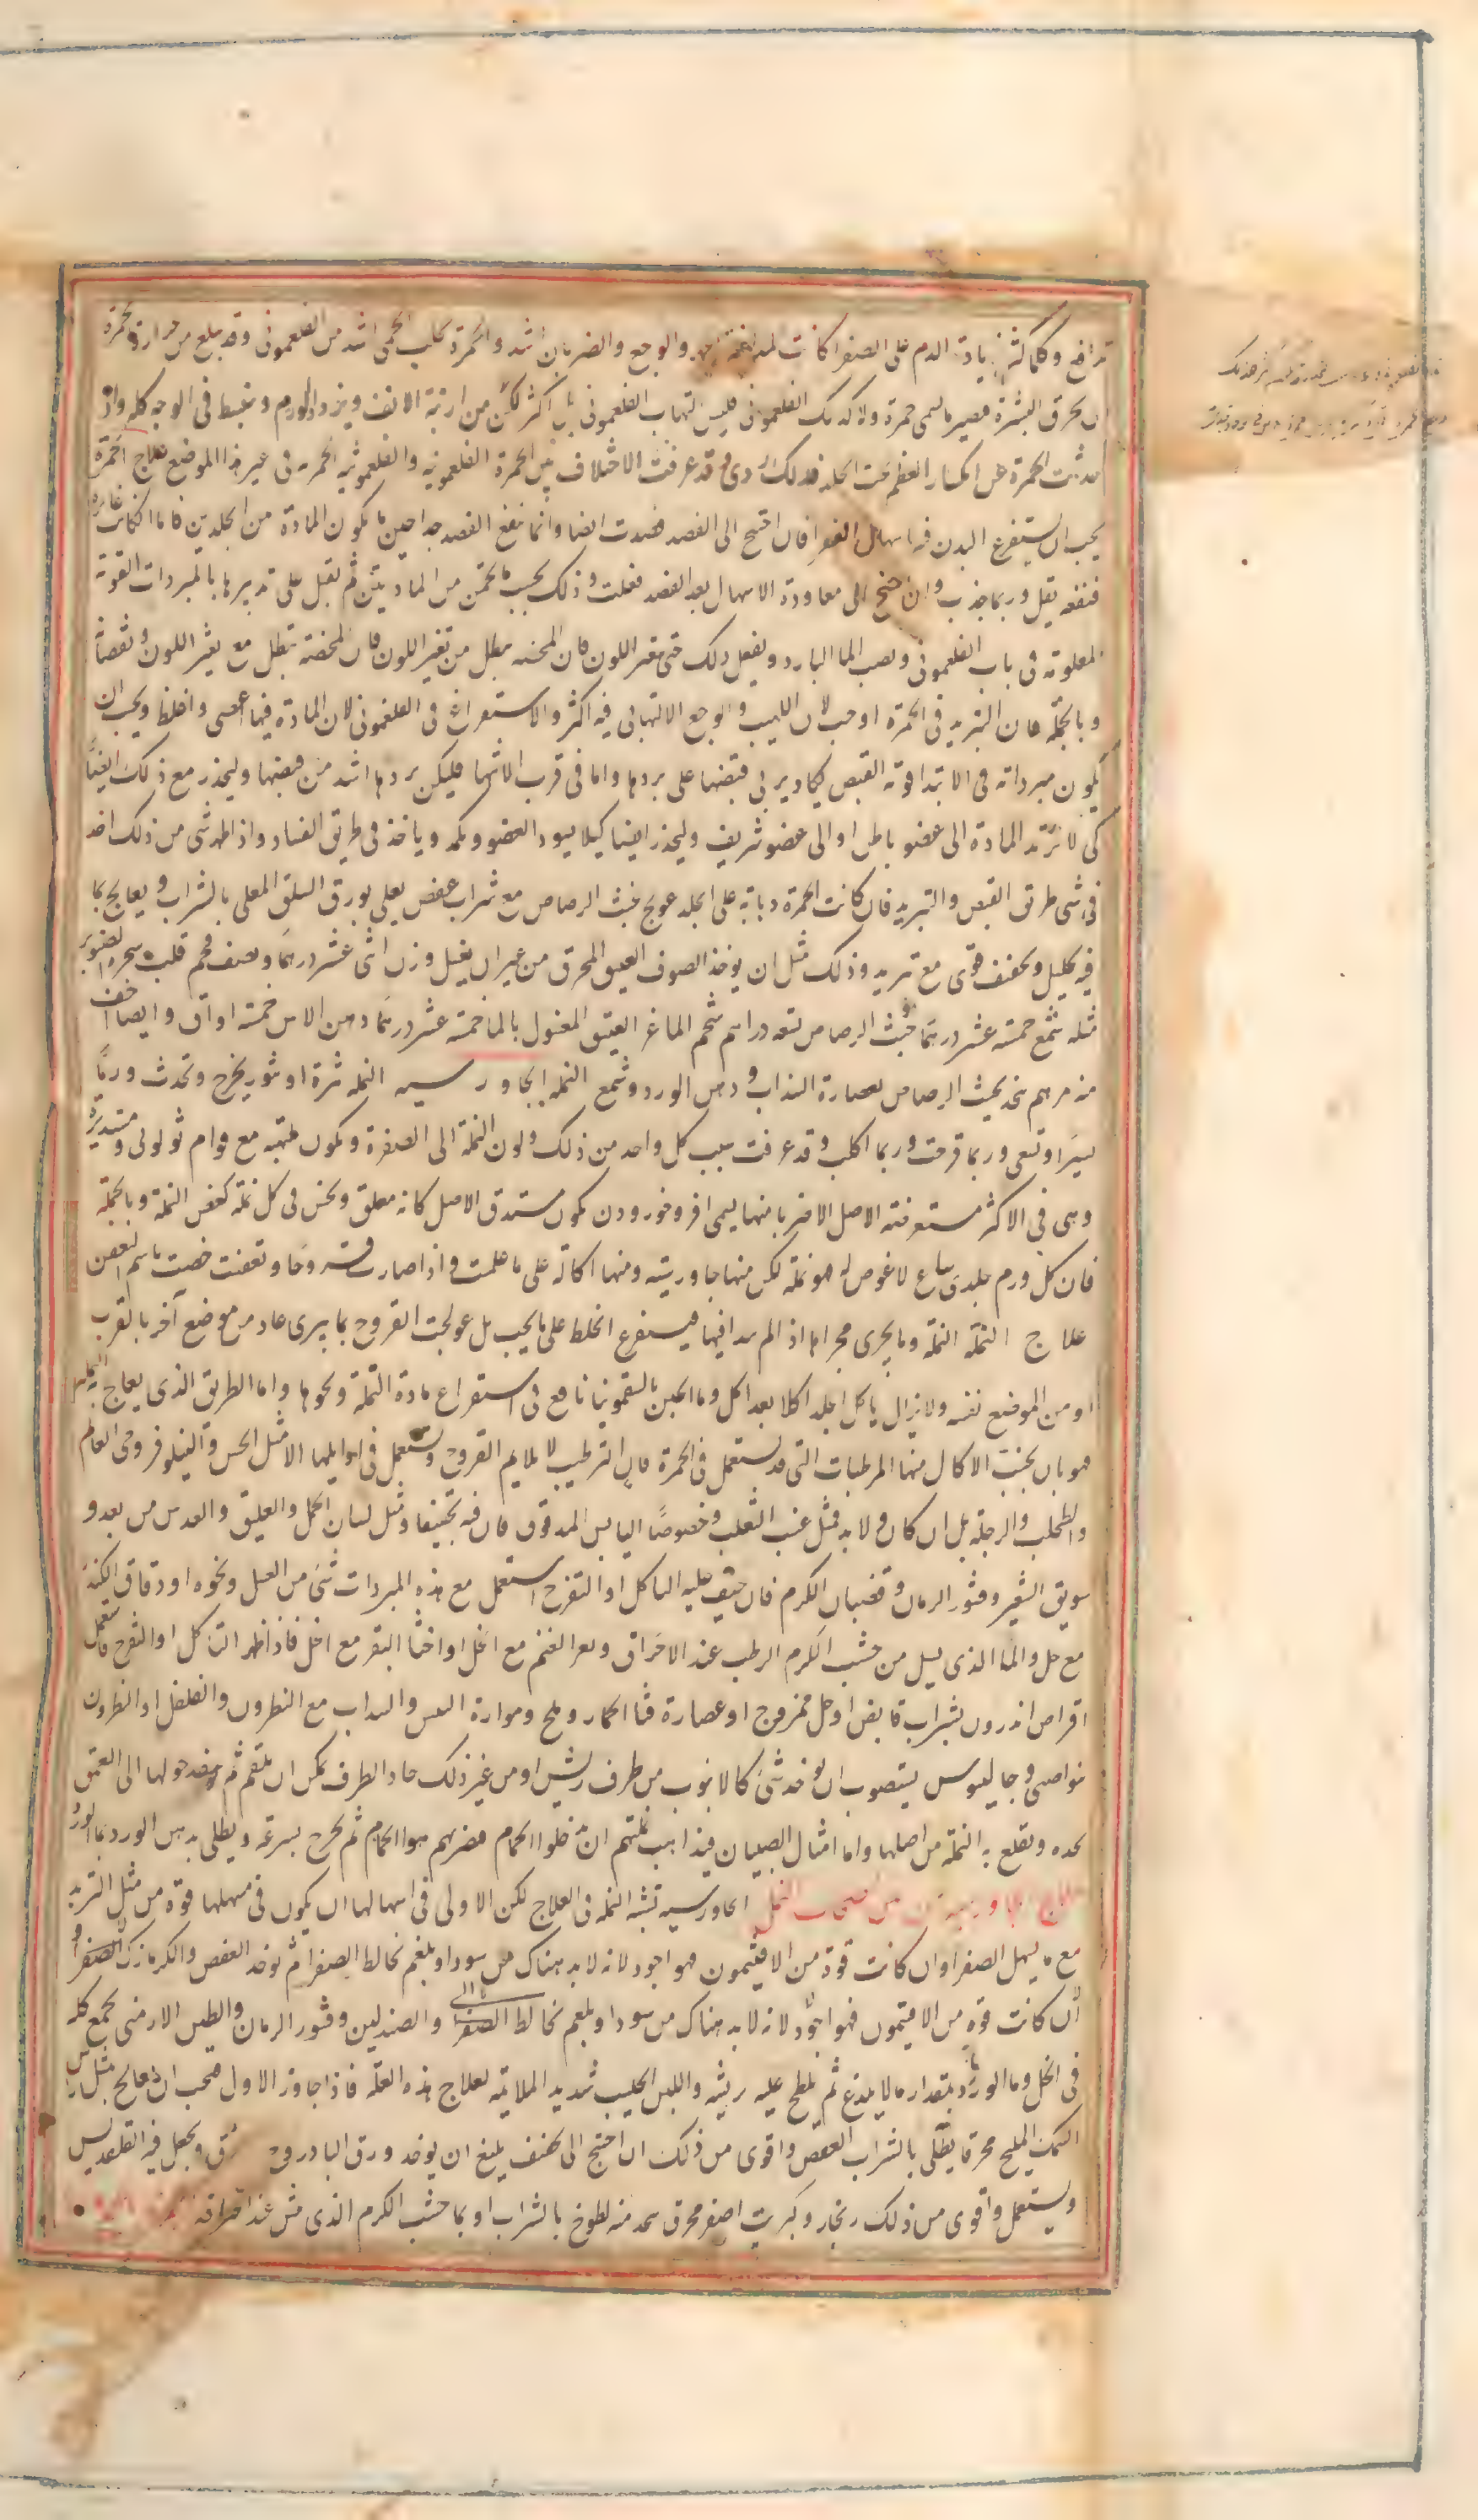 تدافع وكلما كثر زيادة الدم على الصفرا كانت المدافعة اشد والوجع والضربان اشد والحمرة تجلب الحمى اشد من الفلغمونى وقد يبلغ من حرارة الحمرة
ان يحرق البشرة فيصير ما يسمى حمرة ولا كذلك الفلغمونى فليس التهاب الفلغمونى بل اكثر لكن من ارنبة الانف ويزداد الورم وينبسط فى الوجه كله واذا
حدثت الحمرة عن انكسار العظم تحت الجلد فذلك ردى وقد عرفت الاختلاف بين الحمرة الفلغمونيه والفلغمونيه الحمره فى غير هذا الموضع علاج الحمرة
يجب ان يستفرغ البدن فيه باسهال الصفرا فان احتيج الى الفصد فصدت ايضا وانما ينفع الفصد جدا حين ما يكون المادة من الجلدين فاما اذا كانت غايره
فنفعه يقل وربما جذب وان احتيج الى معاودة الاسهال بعد الفصد فعلت وذلك بحسب ما تخمن من المادتين ثم تقبل على تدبيرها بالمبردات القويه
المعلومة فى باب الفلغمونى وبصب الما البارد ويفعل ذلك حتى يتغير اللون فان المحضة تبطل من تغير اللون فان المحضة تبطل مع تغير اللون ونقصانه
وبالجملة فان التبريد فى الحمرة اوجب لان اللهيب والوجع الالتهابى فيه اكثر والاستفراغ فى الفلغمونى لان المادة فيها اعصى واغلظ ويجب ان
يكون مبرداته فى الابتدا قوية القبض يكاد يربى قبضها على بردها واما فى قرب الانتها فليكن بردها اشد من قبضها وليحذر مع ذلك ايضا
كى لا ترتد المادة الى عضو باطن او الى عضو شريف وليحذر ايضا كيلا يسود العضو ويكمد وياخذ فى طريق الفساد واذا ظهر شى من ذلك اخذ
فى شى طريق القبض والتبريد فان كانت الحمرة دبابة على الجلد عولج بخبث الرصاص مع شراب عفص يطلى بورق السلق المغلى بالشراب ويعالج بما
فيه تحليل وتجفيف قوى مع تبريد وذلك مثل ان يوخذ الصوف العتيق المحرق من غير ان يغسل وزن اثنى عشر درهما ونصف فحم قلب شجرة الصنوبر
مثله شمع خمسة عشر درهما خبث الرصاص تسعه دراهم شحم الماعز العتيق المغسول بالما خمسة عشر درهما دهن الاس خمسة اواق وايضا اخف
منه مرهم يتخذ بخبث الرصاص بعصارة السذاب ودهن الورد وشمع النمله الجاورسيه النمله بثرة او بثور يخرج وتحدث ورما
يسيرا وتسعى وربما قرحت وربما اكلت وقد عرفت سبب كل واحد من ذلك ولون النملة الى الصفرة وتكون ملتهبه مع قوام ثولولى ومستديرة
وهى فى الاكثر مستعرضة الاصل الا ضربا منها يسمى افروخوردون يكون مستدق الاصل كانه معلق ويحس فى كل نملة كعض النملة وبالجملة
فان كل ورم جلدى ساع لا غوص له فهو نملة لكن منها جاورسيه ومنها اكالة على ما علمت واذا صارت قروحا وتعفنت خصت باسم العفن
علاج النملة النملة وما يجرى مجراها اذا لم يبدا فيها فيستفرغ الخلط على ما يجب بل عولجت القروح بما يبرى عاد من موضع آخر بالقرب
او من الموضع نفسه ولا يزال ياكل الجلد اكلا بعد اكل وما الجبن بالسقمونيا نافع فى استفراغ مادة النملة ونحوها واما الطريق الذى يعالج به النملة
فهو بان يجنب الاكال منها المرطبات التى قد تستعمل فى الحمرة فان الترطيب لا يلايم القروح ويستعمل فى اوايلها لا مثل الخس والنيلوفر وحى العالم
والطحلب والرجلة بل ان كان ولا بد فمثل عنب الثعلب وخصوصا اليابس المدقوق فان فيه تجفيفا ومثل لسان الحمل والعليق والعدس من بعد و
سويق الشعير وقشور الرمان وقضبان الكرم فان خيف عليه التاكل او التقرح استعمل مع هذه المبردات شى من العسل ونحوه او دقاق الكندر
مع خل والما الذى يسيل من خشب الكرم الرطب عند الاحراق وبعر الغنم مع الخل او اخثا البقر مع الخل فاذا ظهر التاكل او التقرح فاستعمل
اقراص اندرون بشراب قابض او خل ممزوج او عصارة قثا الحمار وملح ومرارة التيس والسداب مع النطرون والفلفل او النطرون
نواصى وجالينوس يستصوب ان يوخذ شى كالانبوب من طرف ريش او من غير ذلك حاد الطرف يمكن ان يلتقم ثم ينفذ حولها الى العمق
بحده وتقلع به النملة من اصلها واما امثال الصبيان فيذاهب نملتهم ان يدخلوا الحمام فضربهم هوا الحمام ثم يخرج بسرعة ويطلى بدهن الورد بما الورد
علاج الجاورسيه الجاورسيه تشبه النمله فى العلاج لكن الاولى فى اسهالها ان يكون فى مسهلها قوة من مثل التربد
مع ما يسهل الصفرا وان كانت قوة من الافتيمون فهو اجود لانه لا بد هناك من سودا وبلغم تخالط الصفرا ثم يوخذ العفص والكرمازك الصفرا و
ان كانت قوة من الافتيمون فهو اجود لانه لا بد هناك من سودا وبلغم تخالط الصفرا والصندلين وقشور الرمان والطين الارمنى يجمع كله
فى الخل وما الورد بمقدار ما لا يلذع ثم يلطخ عليه بريشه واللبن الحليب شديد الملايمة لعلاج هذه العلة فاذا جاوز الاول فيجب ان يعالج بمثل راس
السمك المليح محرقا يطلى بالشراب العفص واقوى من ذلك ان احتيج الى تجفيف بليغ ان يوخذ ورق البادروج ويدق ويجعل فيه القلقديس
ويستعمل واقوى من ذلك زنجار وكبريت اصفر محرق يتخذ منه لطوخ بالشراب او بما خشب الكرم الذى ينش عند احراقه